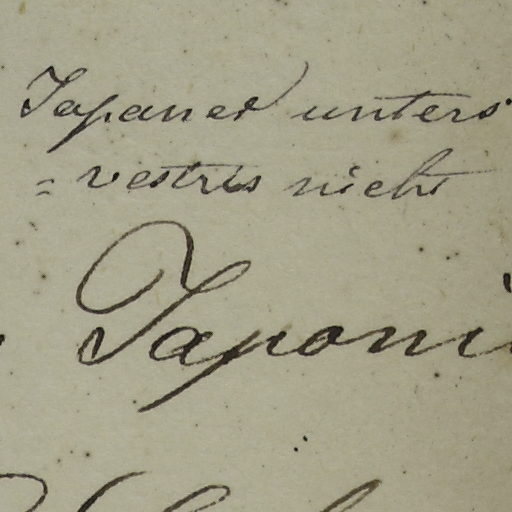 Japaner unters
= vestris nicht
Japoni